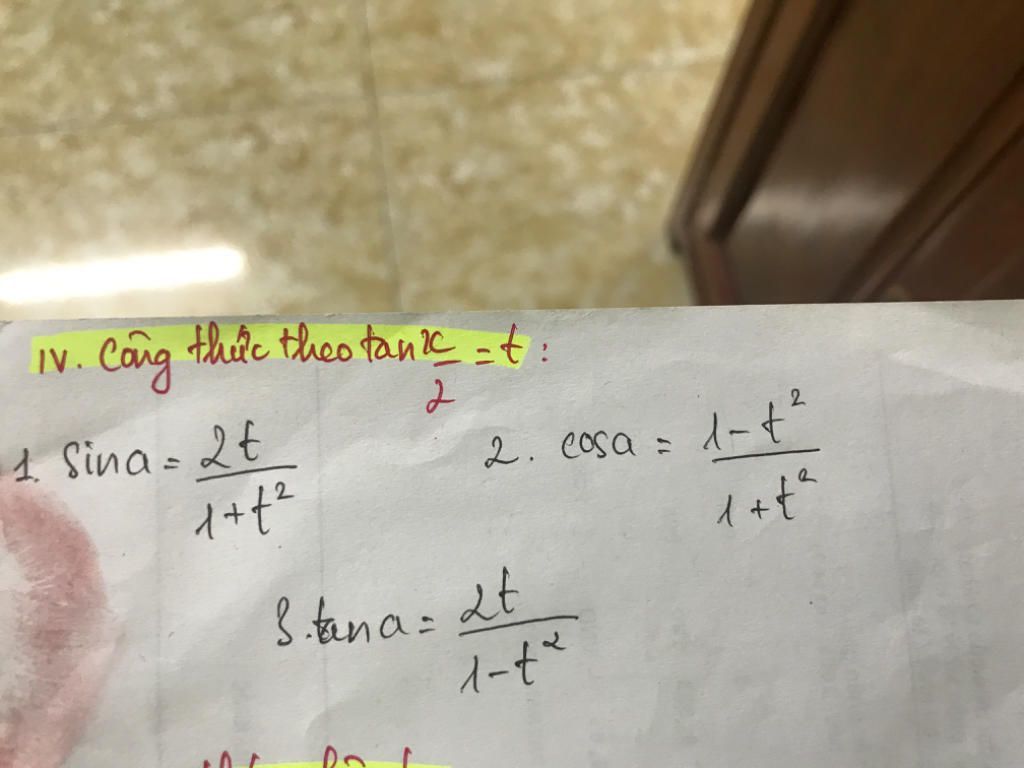 IV. Công thức theo tan x/2 = t :
1. Sin a = 2t/(1+t²) 2. cos a = (1-t²)/(1+t²)
3. tan a = 2t/(1-t²)